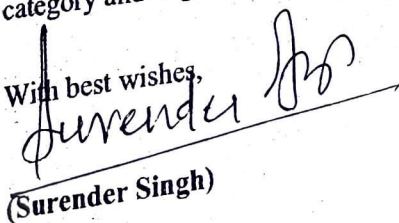 category and
With best wishes,
Surender Singh
(Surender Singh)